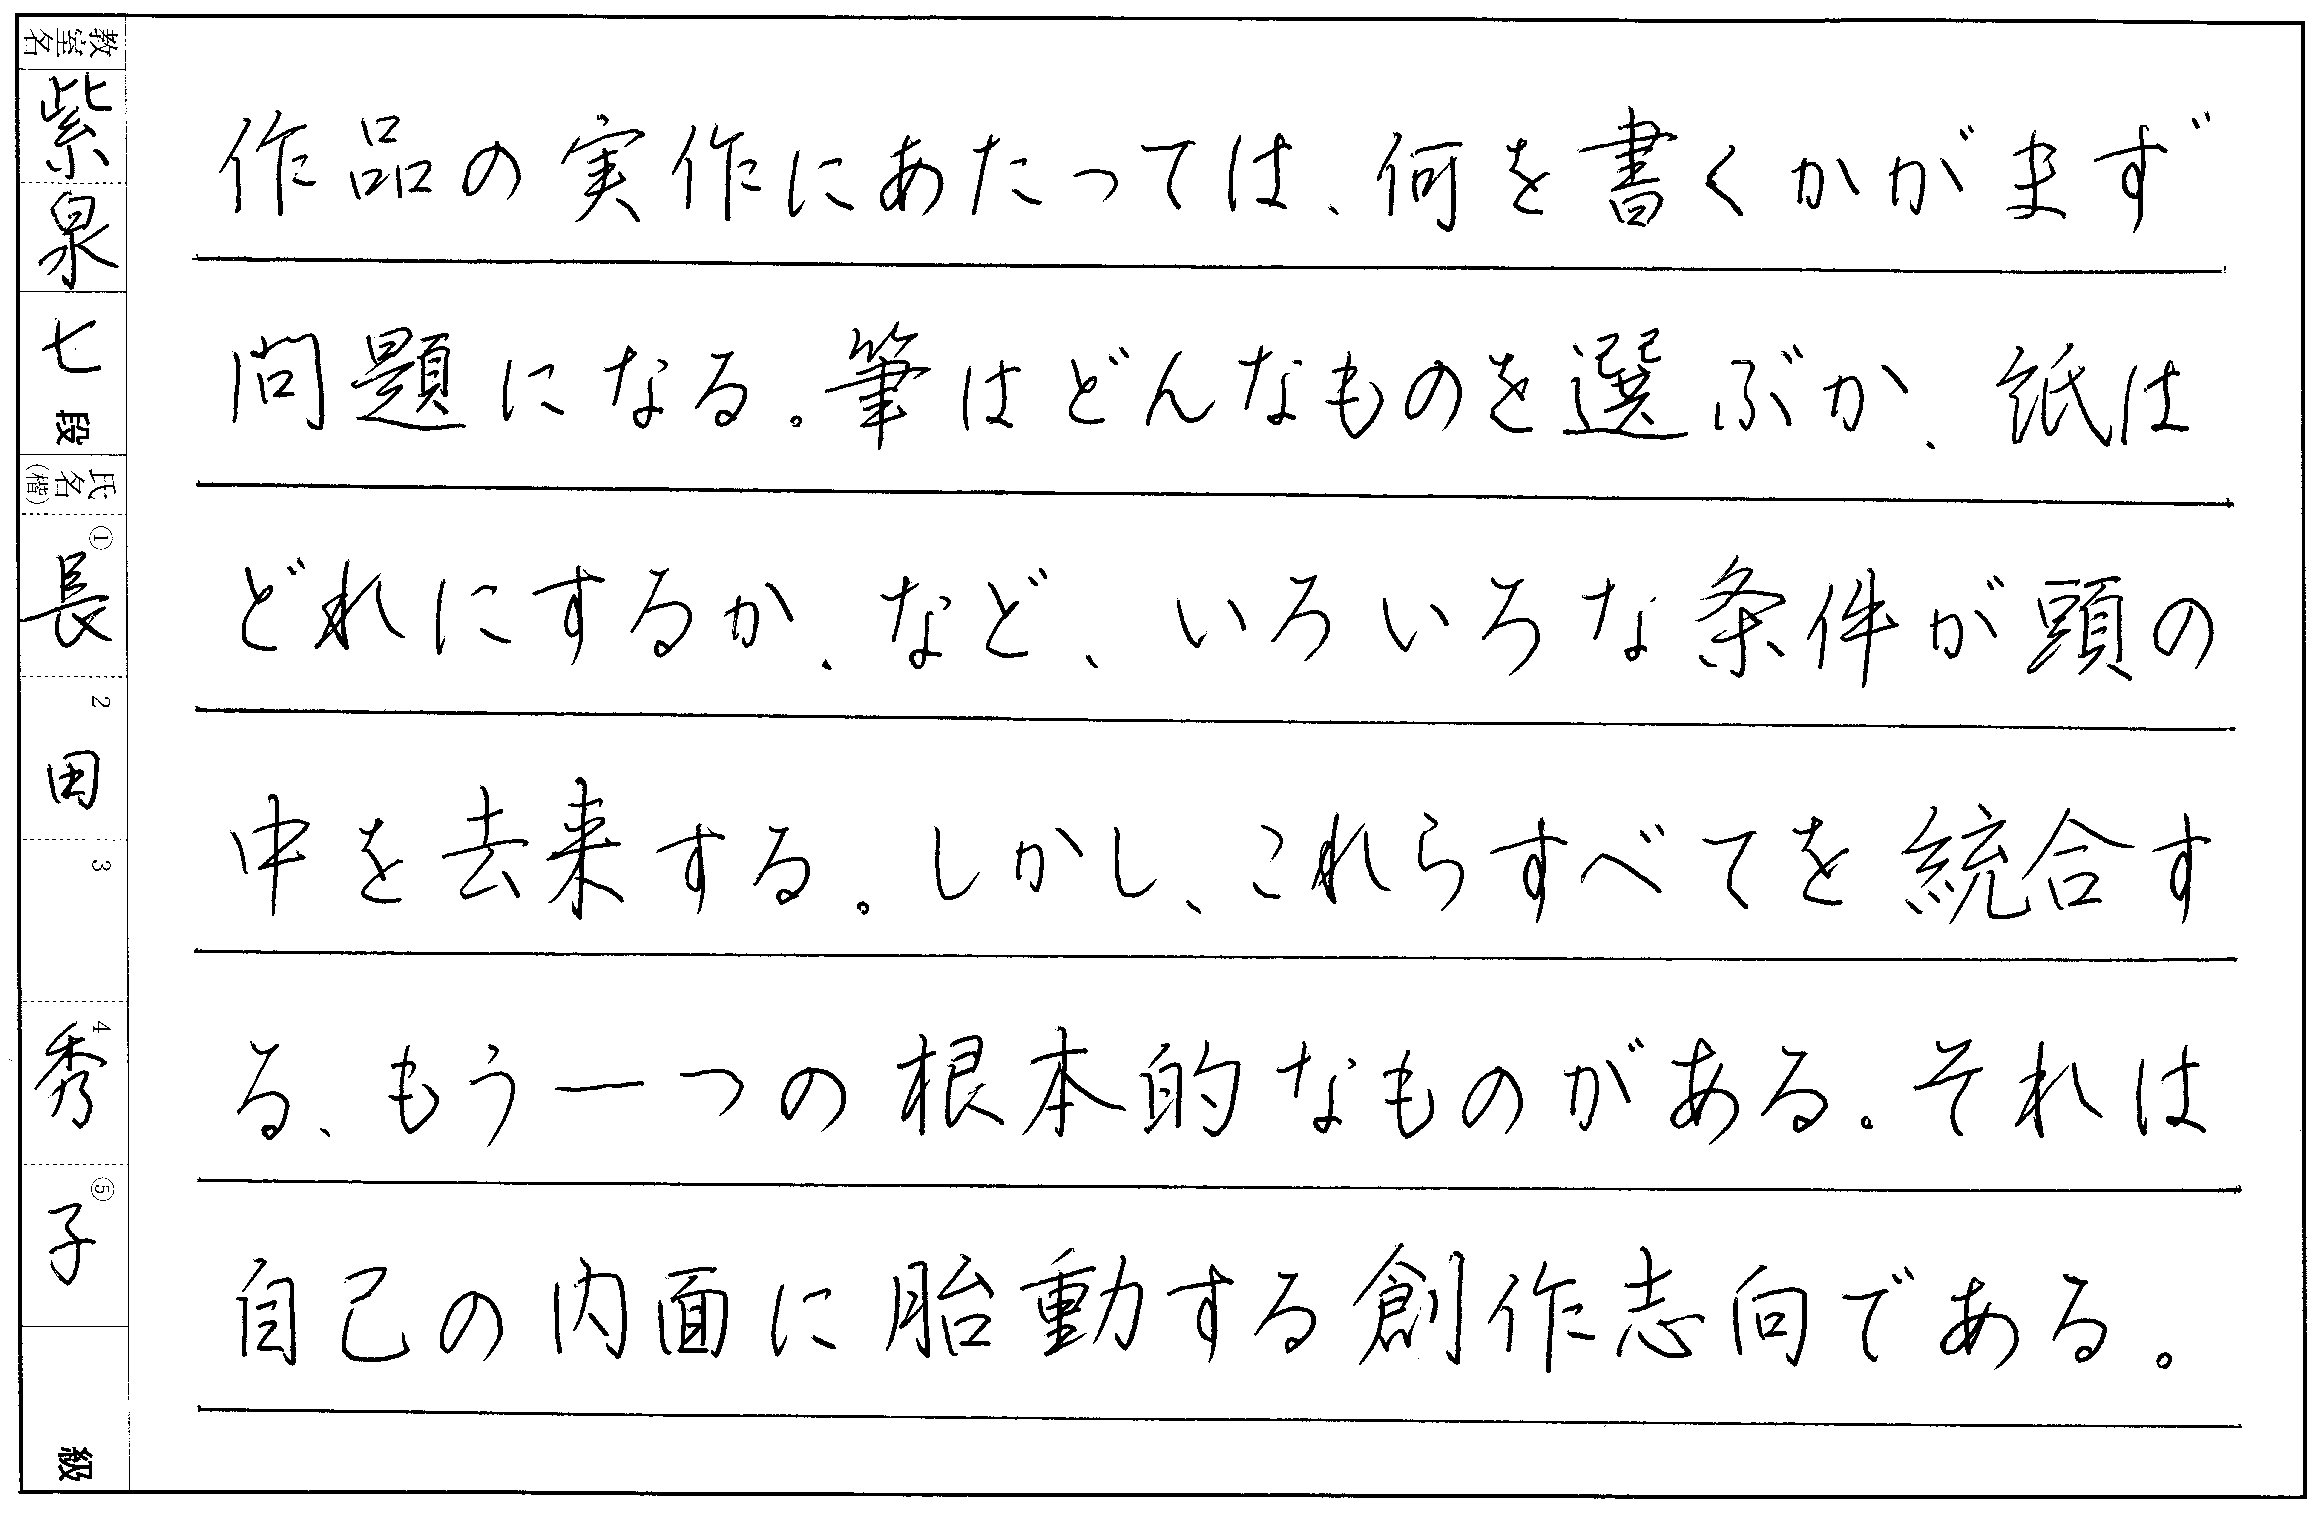 教室名
紫泉
七段
氏名(楷)
① 長
2 田
3
4 秀
⑤ 子
級
作品の実作にあたっては、何を書くかがまず
問題になる。筆はどんなものを選ぶか、紙は
どれにするか、など、いろいろな条件が頭の
中を去来する。しかし、これらすべてを統合す
る、もう一つの根本的なものがある。それは
自己の内面に胎動する創作志向である。